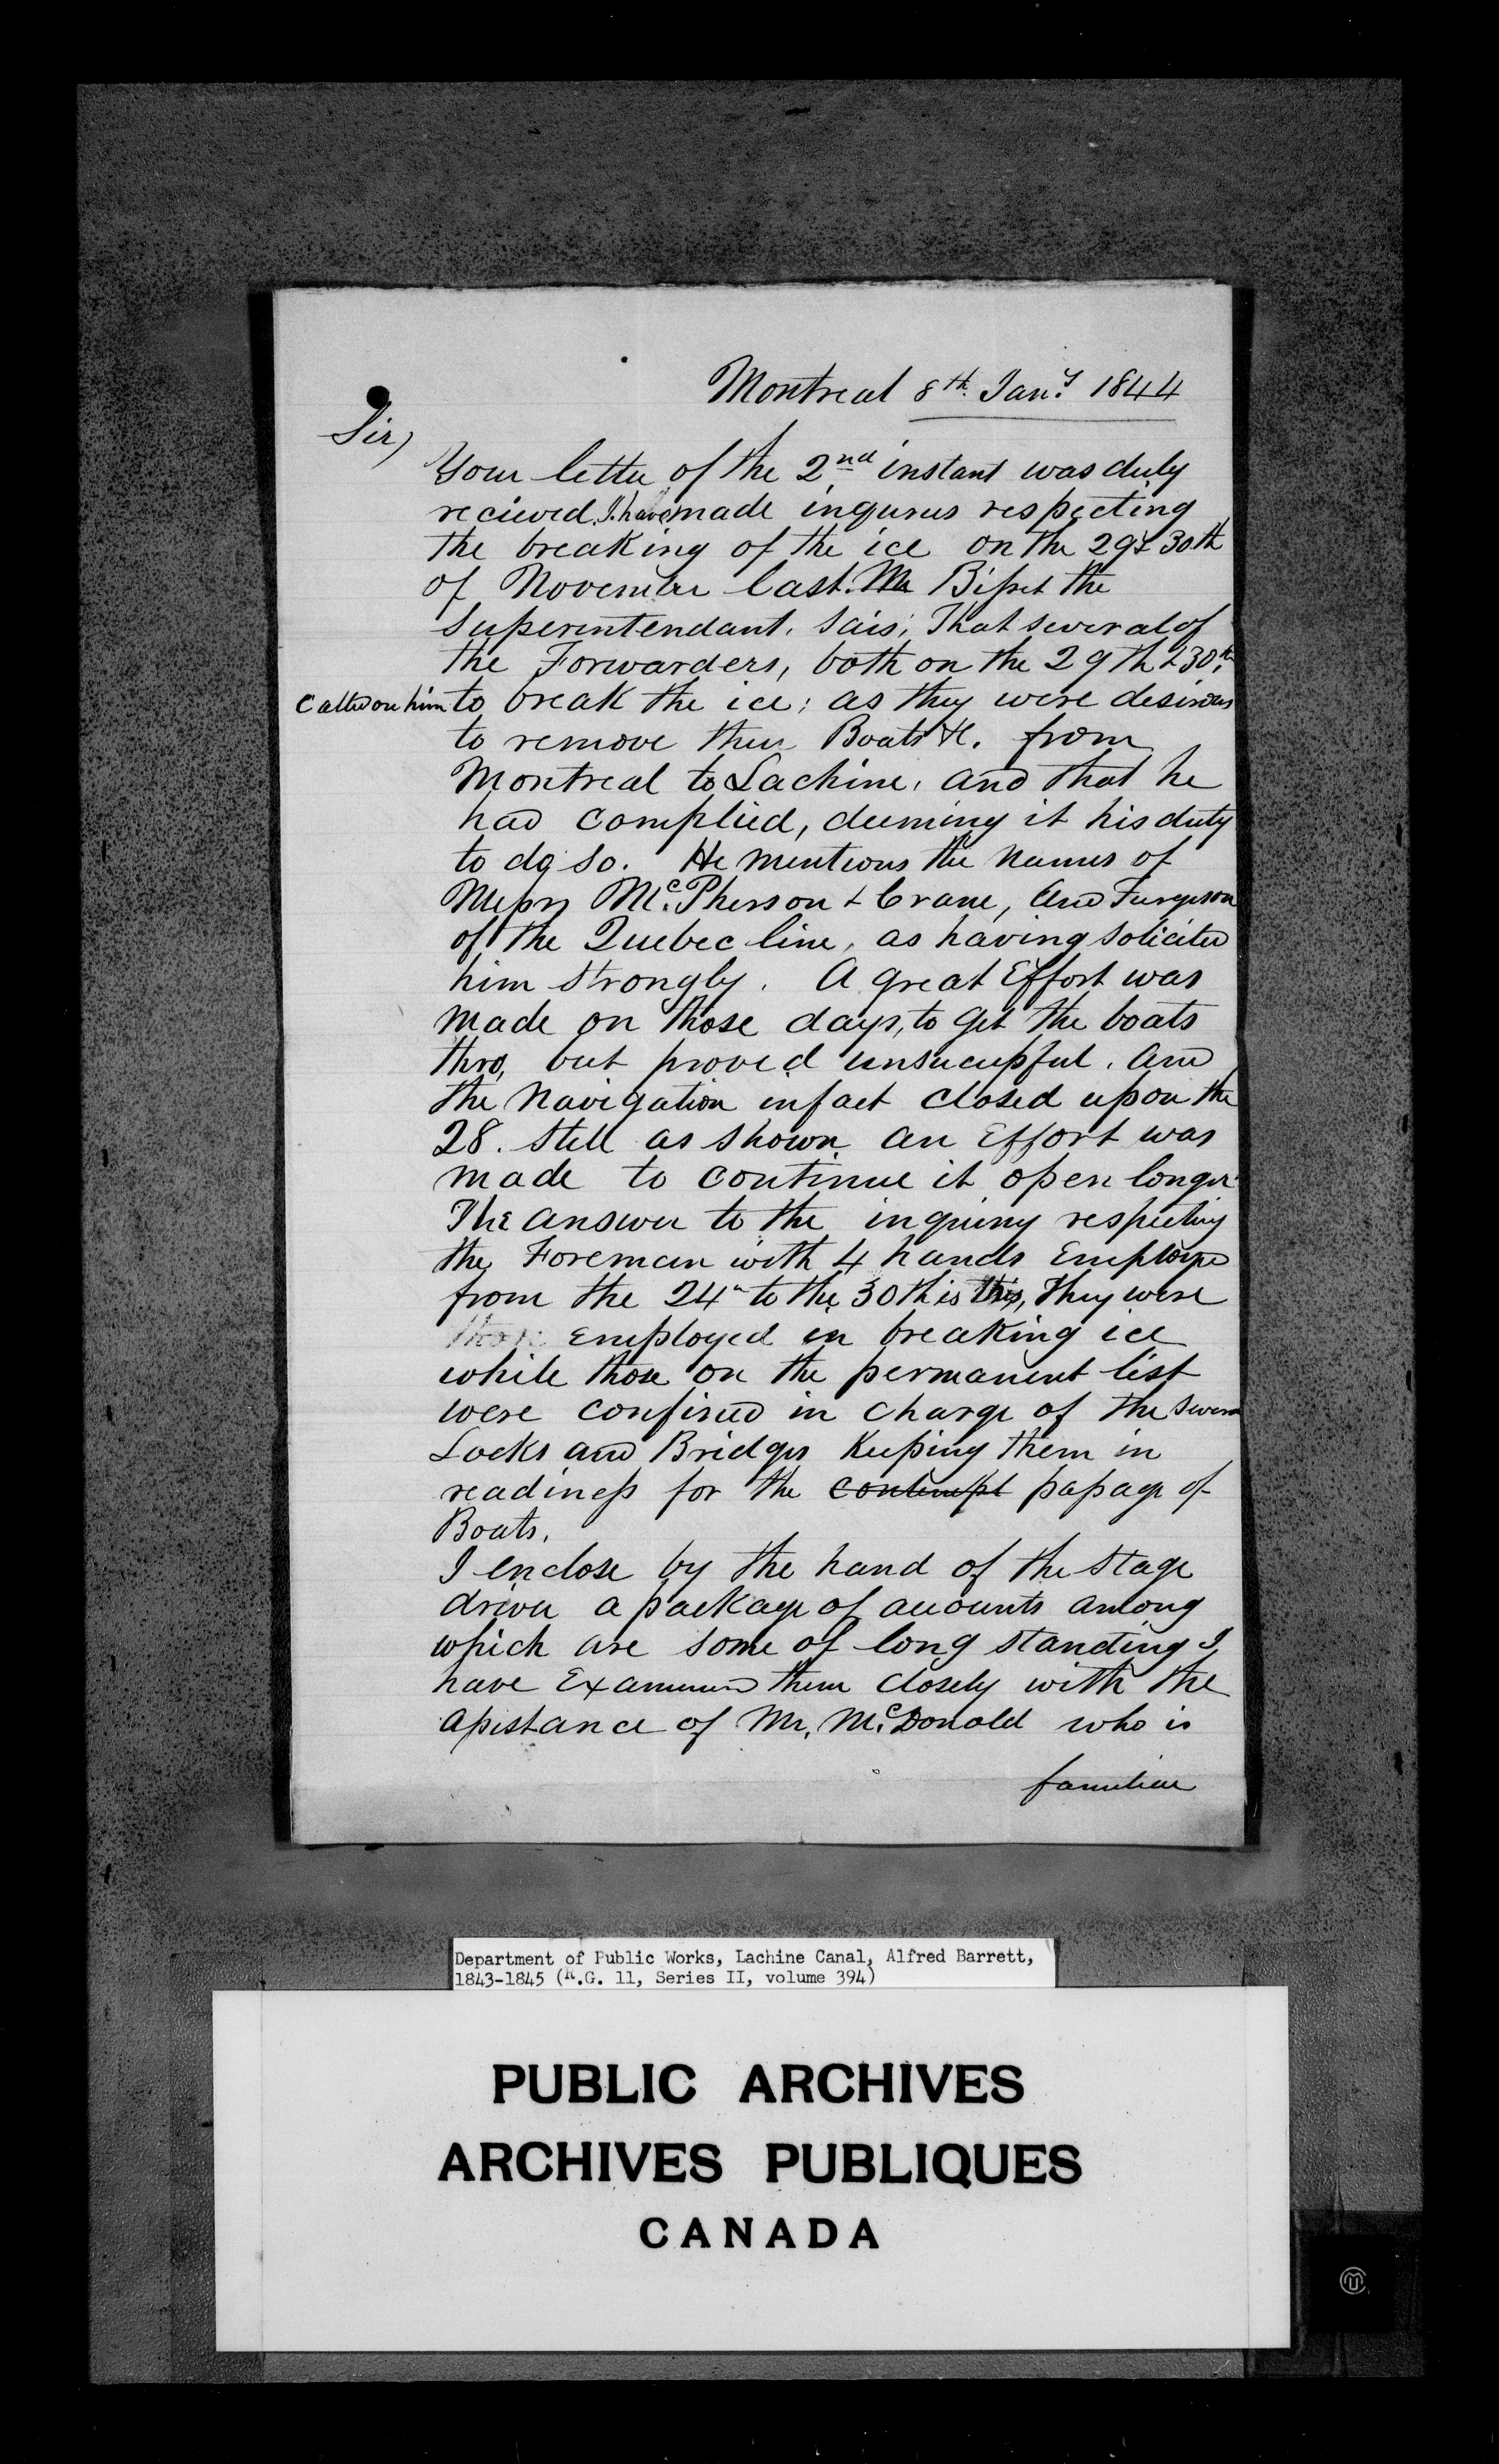 Montreal 8th Jany 1844
Sir,
Your letter of the 2nd instant was duly
recieved. I have made inquires respecting
the breaking of the ice on the 29 & 30th
of November last. Mr Bisset the
Superintendant. sais, That several of
the Forwarders, both on the 29th & 30th
called on him to break the ice; as they were desirous
to remove their Boats &c. from
Montreal to Lachine, and that he
had complied, deeming it his duty
to do so. He mentions the names of
Messrs McPherson & Crane, and Furgeson
of the Quebec line, as having solicited
him strongly. A great Effort was
made on those days, to get the boats
thro, but proved unsucessful. and
the Navigation in fact closed upon the
28. Still as shown an Effort was
made to continue it open longer
The answer to the inquiry respecting
the Foreman with 4 hands Employed
from the 24th to the 30th is this, They were
Employed in breaking ice
while those on the permanent list
were confined in charge of the
Locks and Bridges Keeping them in
readiness for the contempt passage of
Boats.
I enclose by the hand of the Stage
driver a package of accounts among
which are some of long standing I
have Examined them closely with the
assistance of Mr. McDonald who is
familiar
Department of Public Works, Lachine Canal, Alfred Barrett,
1843-1845 (R.G. 11, Series II, volume 394)
PUBLIC ARCHIVES
ARCHIVES PUBLIQUES
CANADA